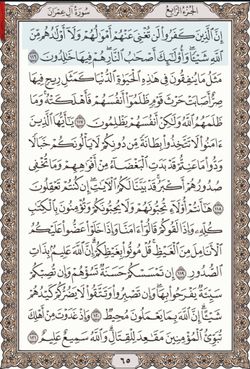 الجزء الرابع سورة آل عمران
إن الذين كفروا لن تغني عنهم أموالهم ولا أولادهم من
الله شيئا وأولئك أصحاب النار هم فيها خالدون ١١٦
مثل ما ينفقون في هذه الحيوة الدنيا كمثل ريح فيها
صر أصابت حرث قوم ظلموا أنفسهم فأهلكته وما
ظلمهم الله ولكن أنفسهم يظلمون ١١٧ يأيها الذين
ءامنوا لا تتخذوا بطانة من دونكم لا يألونكم خبالا
ودوا ما عنتم قد بدت البغضاء من أفواههم وما تخفي
صدورهم أكبر قد بينا لكم الآيات إن كنتم تعقلون
١١٨ هأنتم أولاء تحبونهم ولا يحبونكم وتؤمنون بالكتب
كله وإذا لقوكم قالوا ءامنا وإذا خلوا عضوا عليكم
الأنامل من الغيظ قل موتوا بغيظكم إن الله عليم بذات
الصدور ١١٩ إن تمسسكم حسنة تسؤهم وإن تصبكم
سيئة يفرحوا بها وإن تصبروا وتتقوا لا يضركم كيدهم
شيئا إن الله بما يعملون محيط ١٢٠ وإذ غدوت من أهلك
تبوئ المؤمنين مقعد للقتال والله سميع عليم ١٢١
٦٥